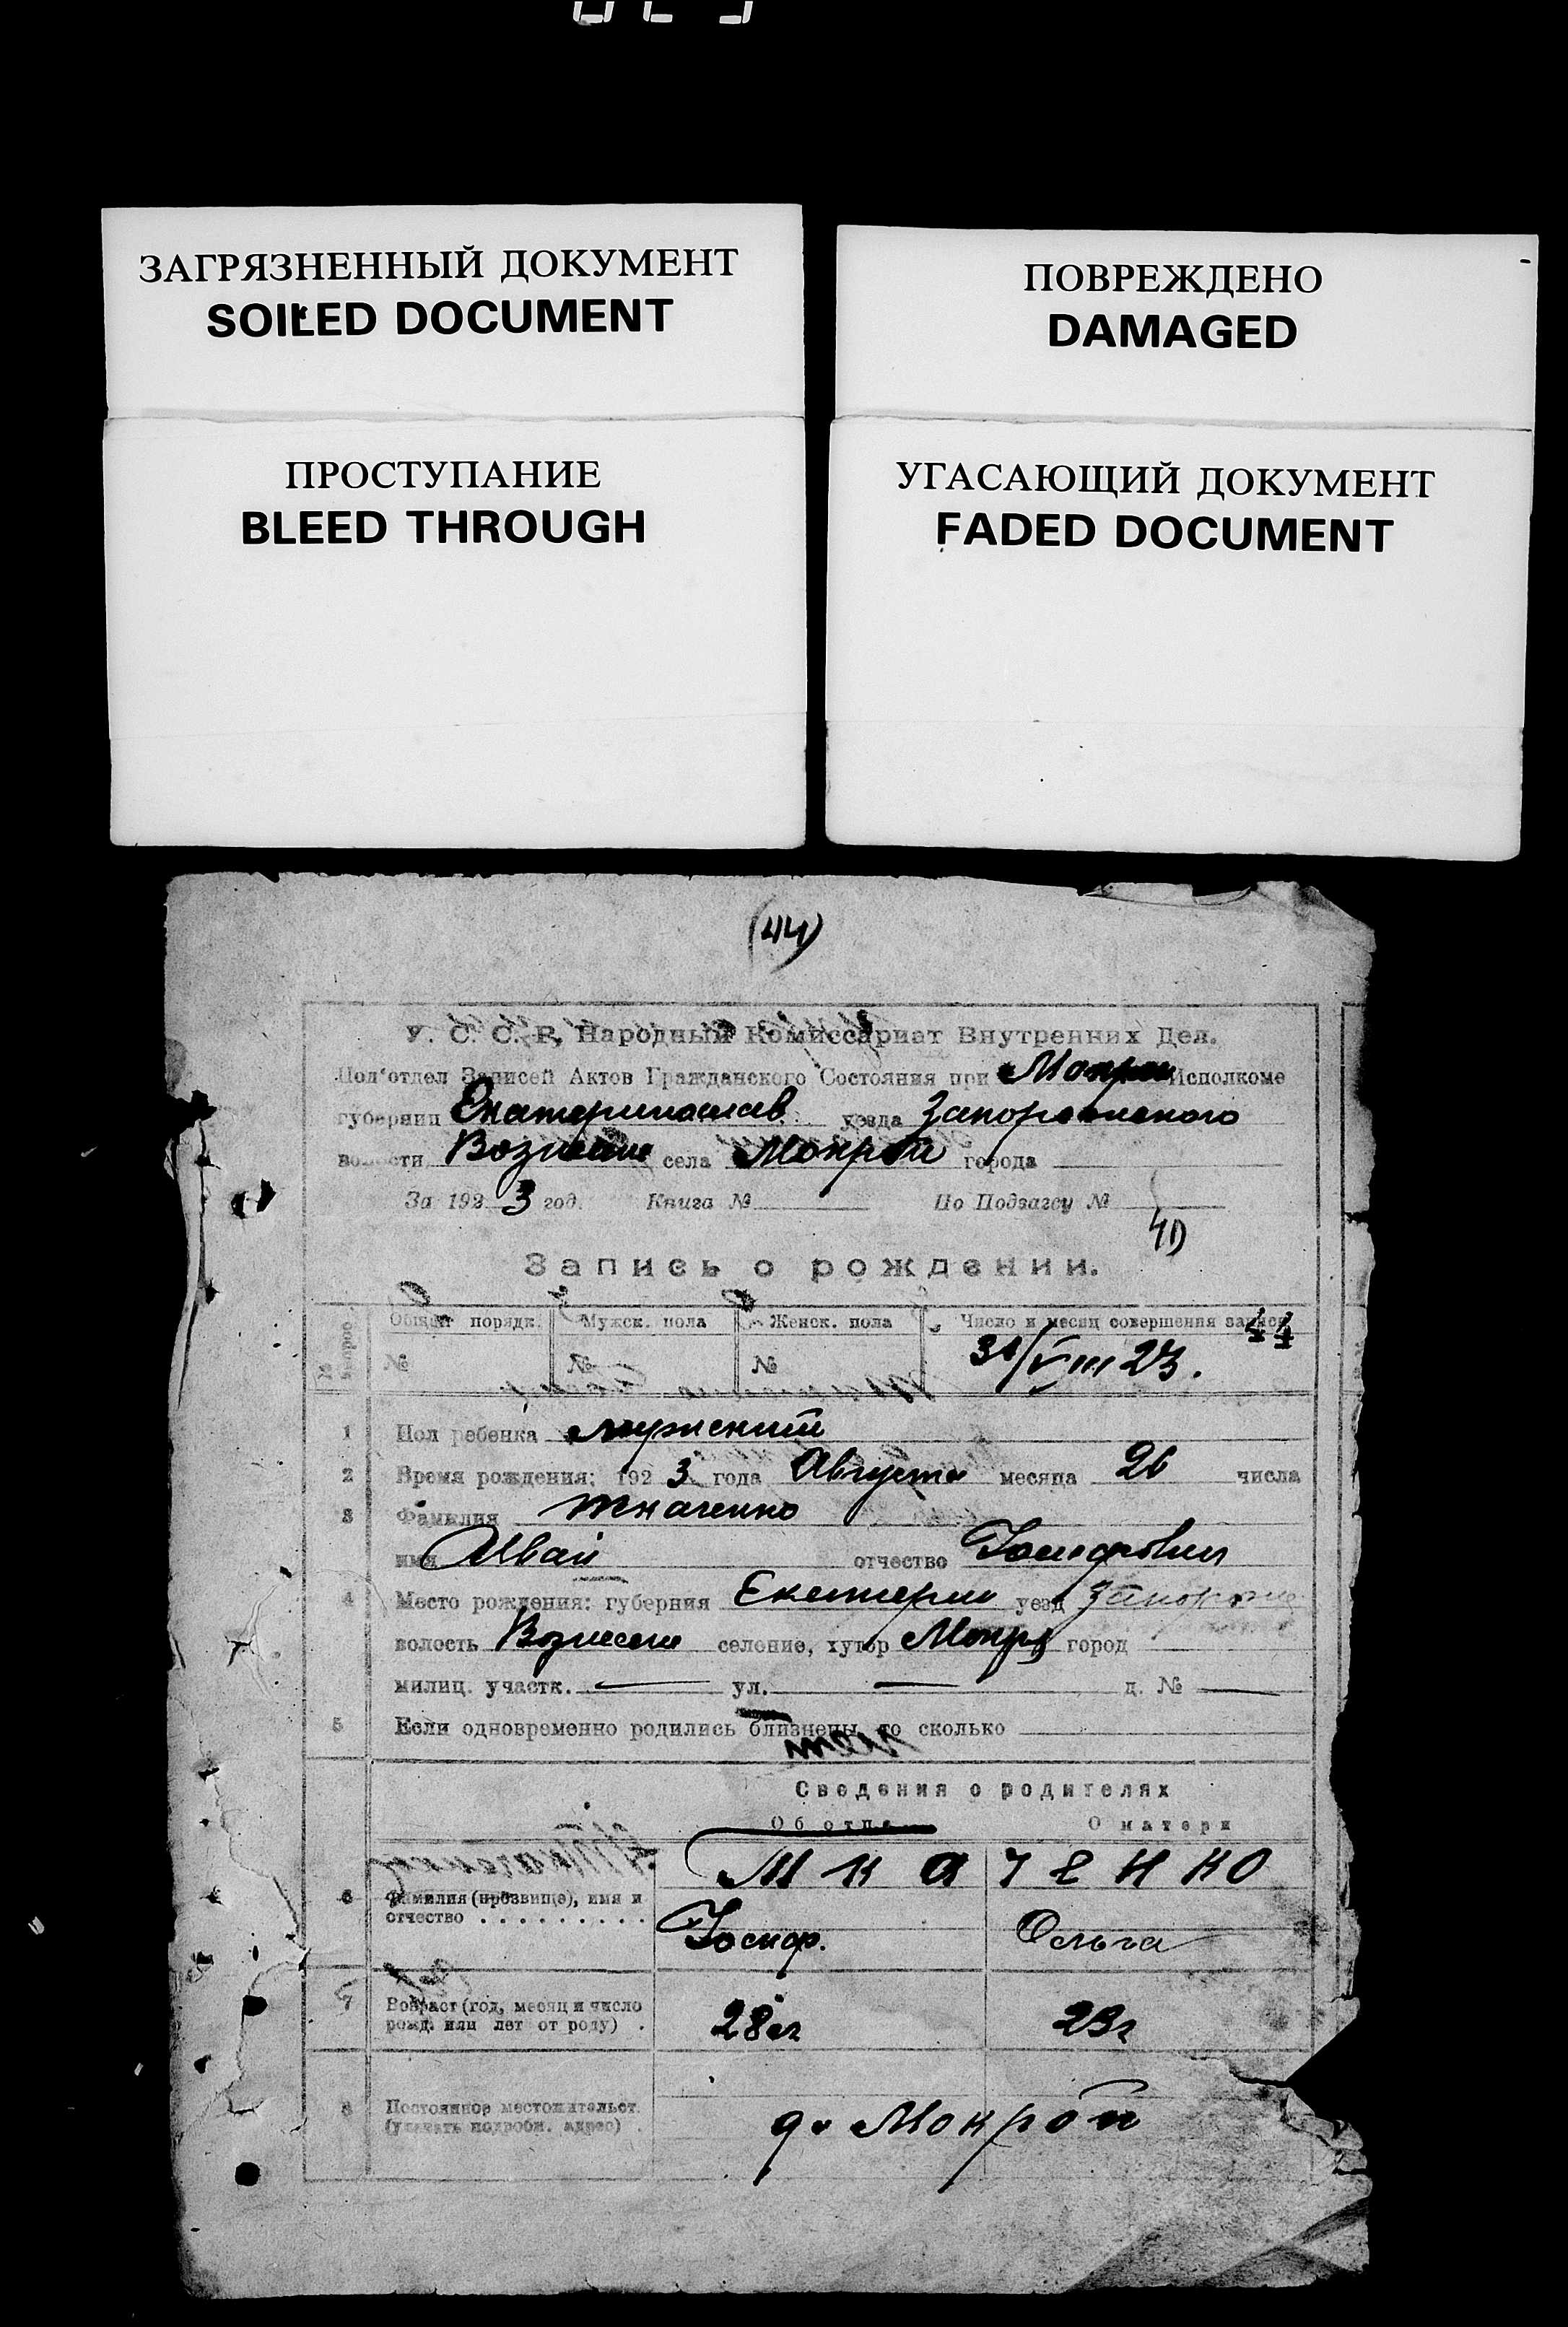 ЗАГРЯЗНЕННЫЙ ДОКУМЕНТ
SOILED DOCUMENT
ПРОСТУПАНИЕ
BLEED THROUGH
ПОВРЕЖДЕНО
DAMAGED
УГАСАЮЩИЙ ДОКУМЕНТ
FADED DOCUMENT
(44)
У. С. С. Р. Народный Комиссариат Внутренних Дел.
Под'отдел Записей Актов Гражданского Состояния при Исполкоме
губернии Екатеринослав. уезда Запорожского
волости Вознесен села Мокрой города
За 1923 год. Книга № По Подзагсу №
41)
Запись о рождении.
№ вопрос Общий порядк. Мужск. пола Женск. пола Число и месяц совершения записи 44
№ № № 31/VIII 23.
1 Пол ребенка мужский
2 Время рождения: 1923 года Августа месяца 26 числа
3 Фамилия Ткаченко
имя Иван отчество Иосифович
4 Место рождения: губерния Екатерин уезд Запорож
волость Вознесен селение, хутор Мокр город
милиц. участк. — ул. — д. № —
5 Если одновременно родились близнецы, то сколько
Сведения о родителях
Об отце О матери
Ткаченко
6 Фамилия (прозвище), имя и
отчество . . . . . . . . . Иосиф. Ольга
7 Возраст (год, месяц и число
рожд. или лет от роду) . 28 л 23 г
8 Постоянное местожительст.
(указать подробн. адрес) . Мокрой